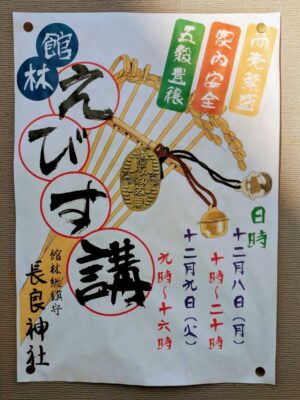 商売繁盛
家内安全
五穀豊穣
館林
えびす講
日時
十二月八日（月）
十時〜二十時
十二月九日（火）
九時〜十六時
館林総鎮守
長良神社